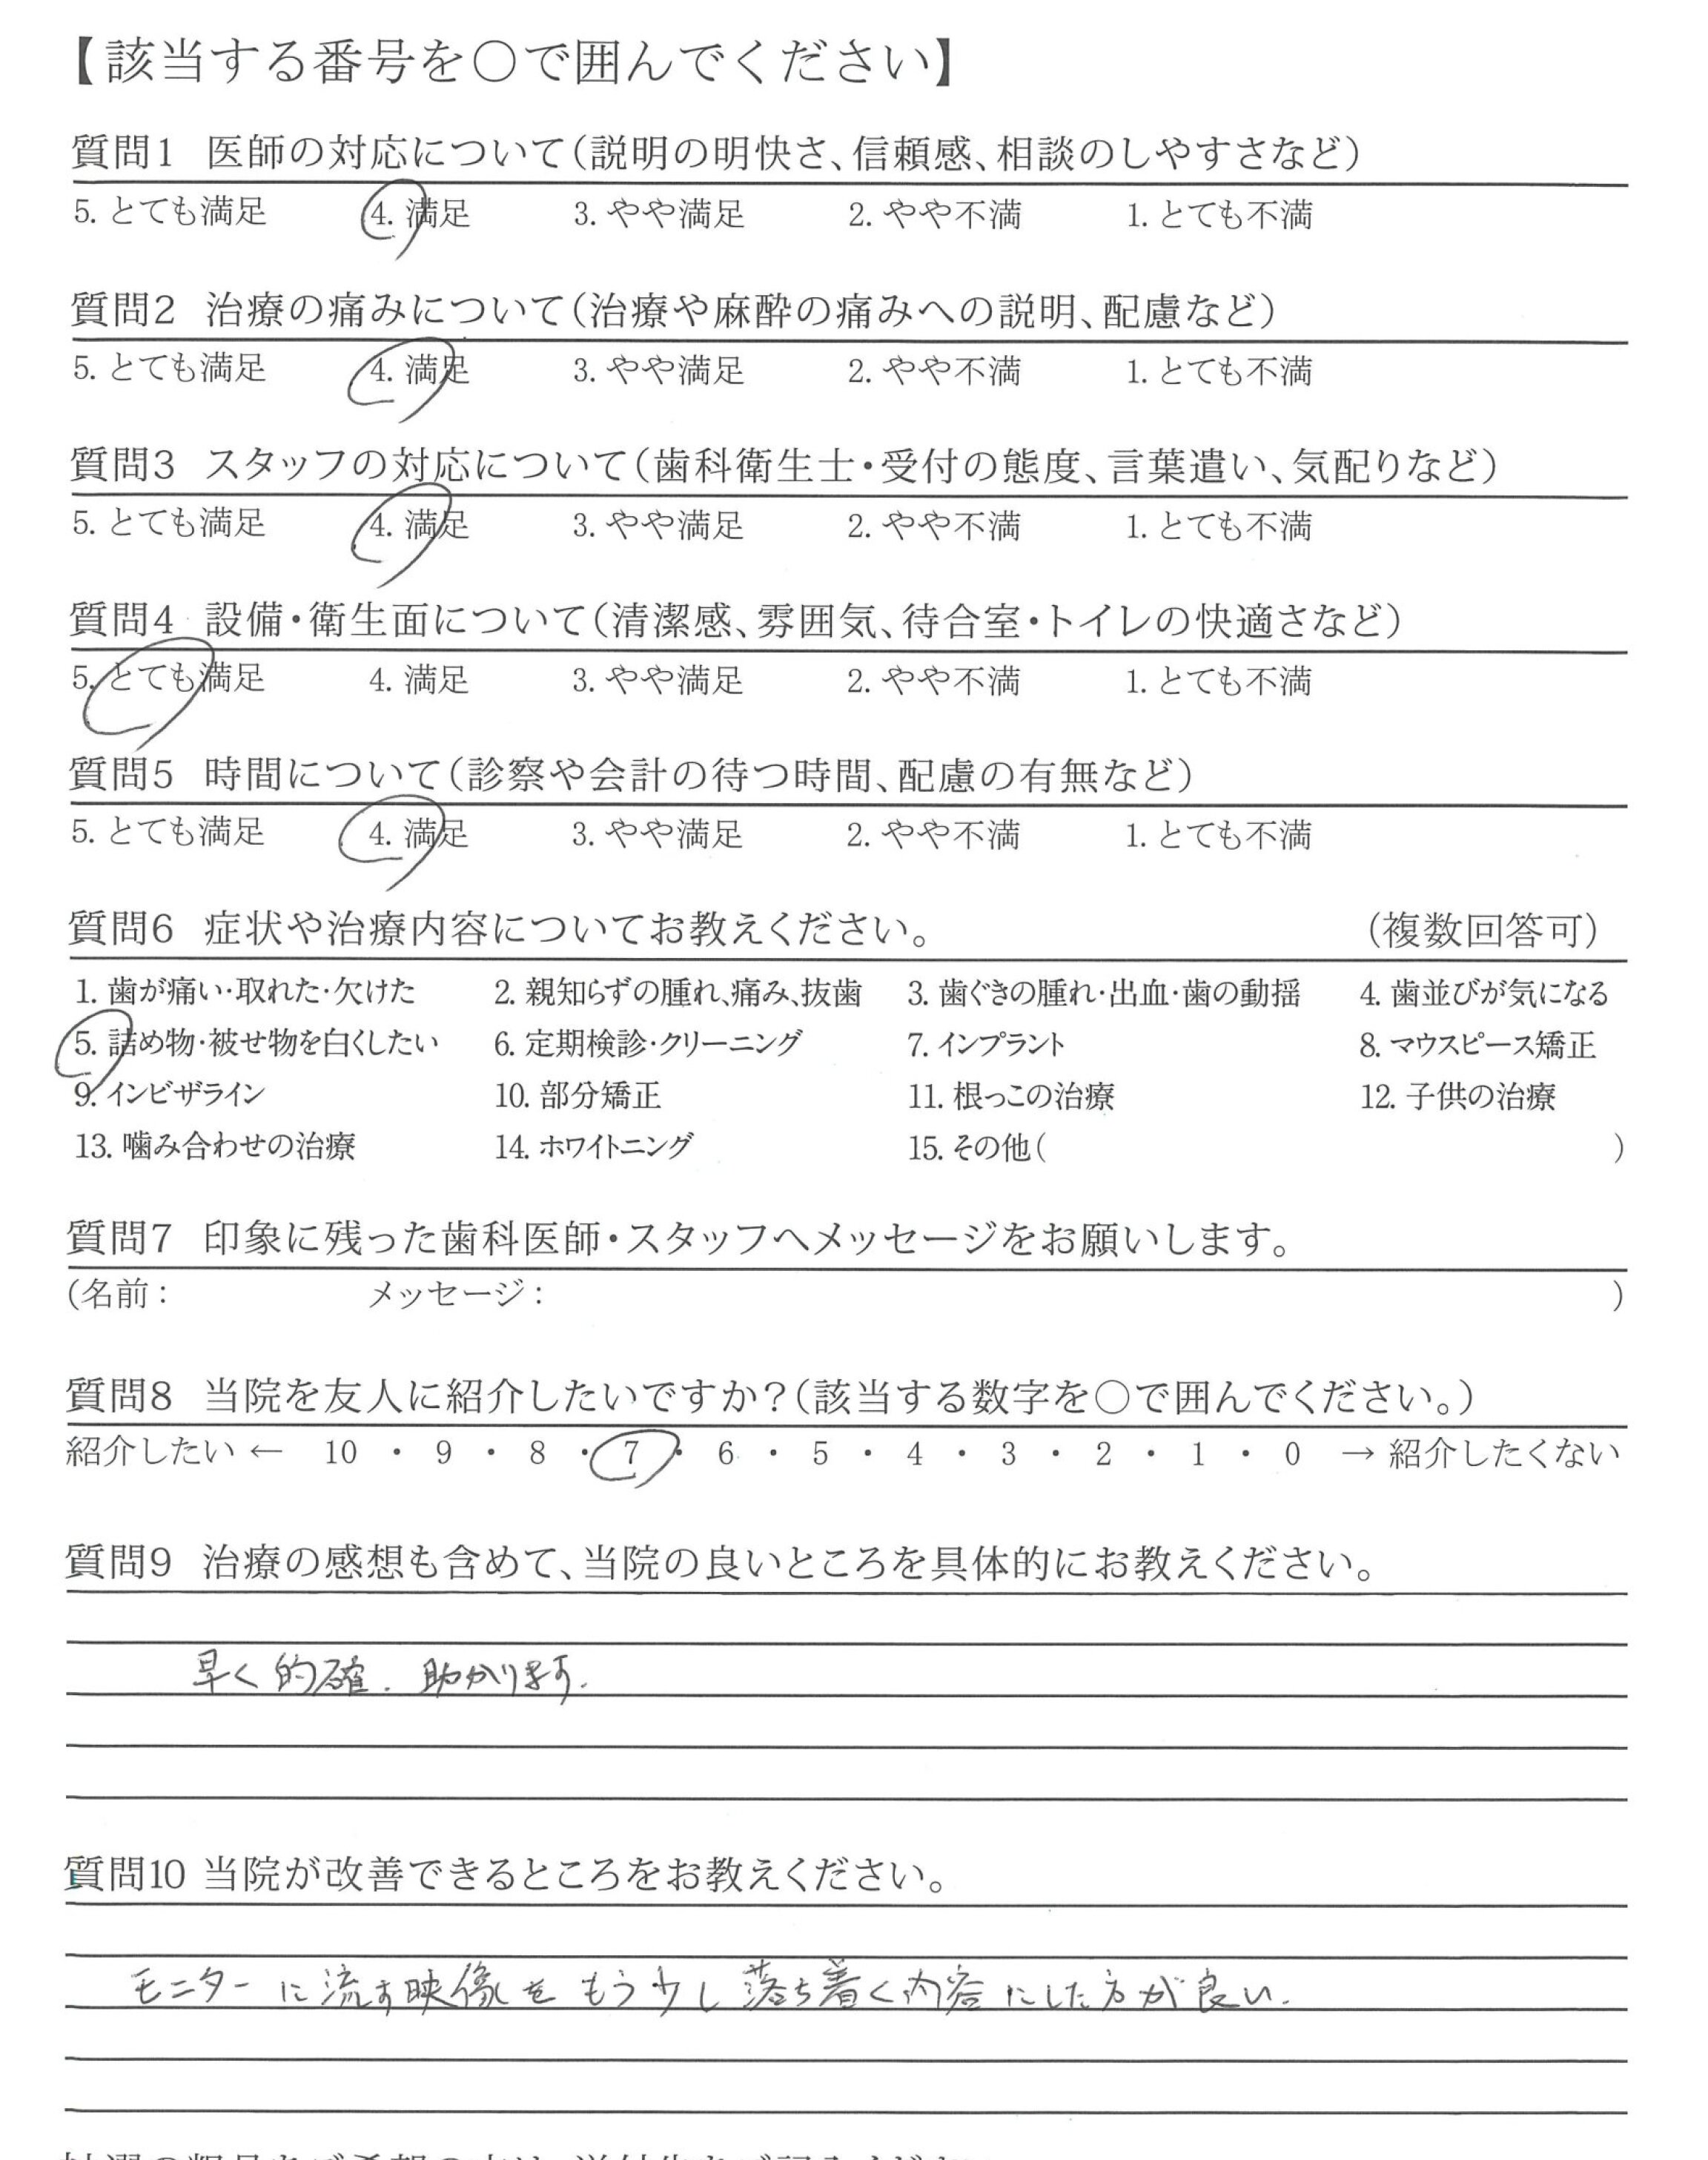 【該当する番号を〇で囲んでください】
質問1 医師の対応について(説明の明快さ、信頼感、相談のしやすさなど)
5. とても満足 4. 満足 3. やや満足 2. やや不満 1. とても不満
質問2 治療の痛みについて(治療や麻酔の痛みへの説明、配慮など)
5. とても満足 4. 満足 3. やや満足 2. やや不満 1. とても不満
質問3 スタッフの対応について(歯科衛生士・受付の態度、言葉遣い、気配りなど)
5. とても満足 4. 満足 3. やや満足 2. やや不満 1. とても不満
質問4 設備・衛生面について(清潔感、雰囲気、待合室・トイレの快適さなど)
5. とても満足 4. 満足 3. やや満足 2. やや不満 1. とても不満
質問5 時間について(診察や会計の待つ時間、配慮の有無など)
5. とても満足 4. 満足 3. やや満足 2. やや不満 1. とても不満
質問6 症状や治療内容についてお教えください。 (複数回答可)
1. 歯が痛い・取れた・欠けた 2. 親知らずの腫れ、痛み、抜歯 3. 歯ぐきの腫れ・出血・歯の動揺 4. 歯並びが気になる
5. 詰め物・被せ物を白くしたい 6. 定期検診・クリーニング 7. インプラント 8. マウスピース矯正
9. インビザライン 10. 部分矯正 11. 根っこの治療 12. 子供の治療
13. 噛み合わせの治療 14. ホワイトニング 15. その他( )
質問7 印象に残った歯科医師・スタッフへメッセージをお願いします。
(名前: メッセージ: )
質問8 当院を友人に紹介したいですか?(該当する数字を〇で囲んでください。)
紹介したい ← 10 ・ 9 ・ 8 ・ 7 ・ 6 ・ 5 ・ 4 ・ 3 ・ 2 ・ 1 ・ 0 → 紹介したくない
質問9 治療の感想も含めて、当院の良いところを具体的にお教えください。
早く的確. 助かります.
質問10 当院が改善できるところをお教えください。
モニターに流す映像をもう少し落ち着く内容にした方が良い.